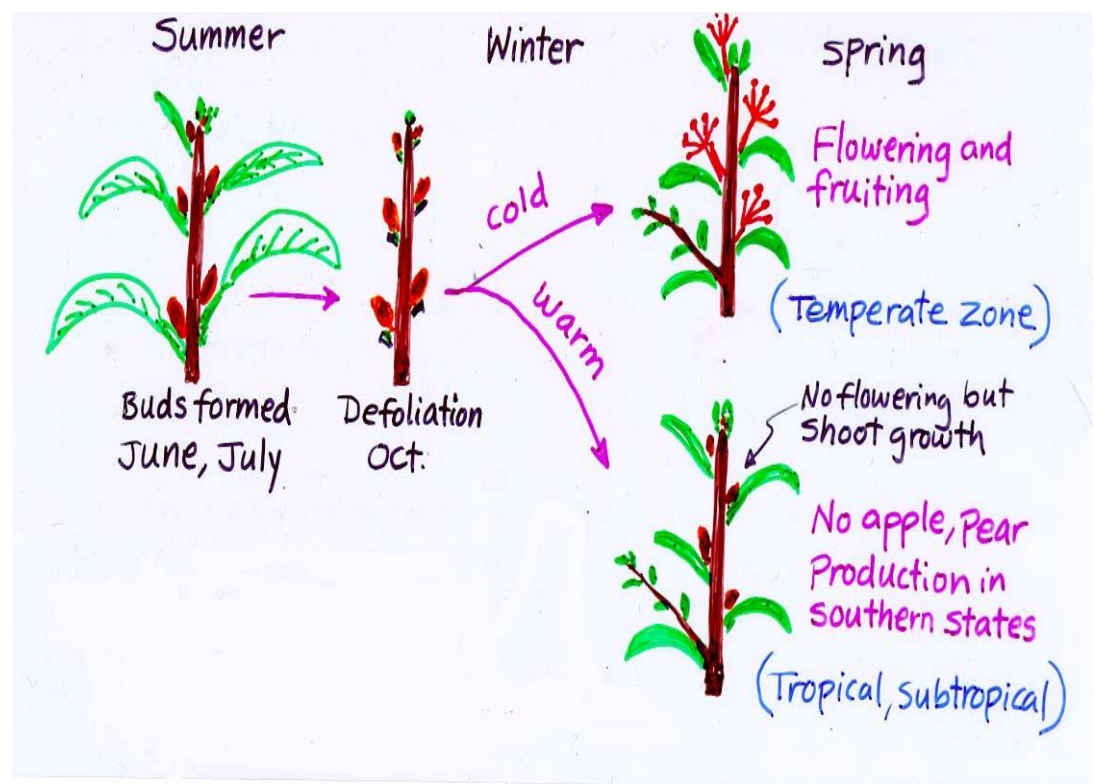 Summer
Winter
Spring
Buds formed
June, July
Defoliation
Oct.
cold
warm
Flowering and
fruiting
(Temperate zone)
No flowering but
Shoot growth
No apple, Pear
Production in
southern states
(Tropical, Subtropical)